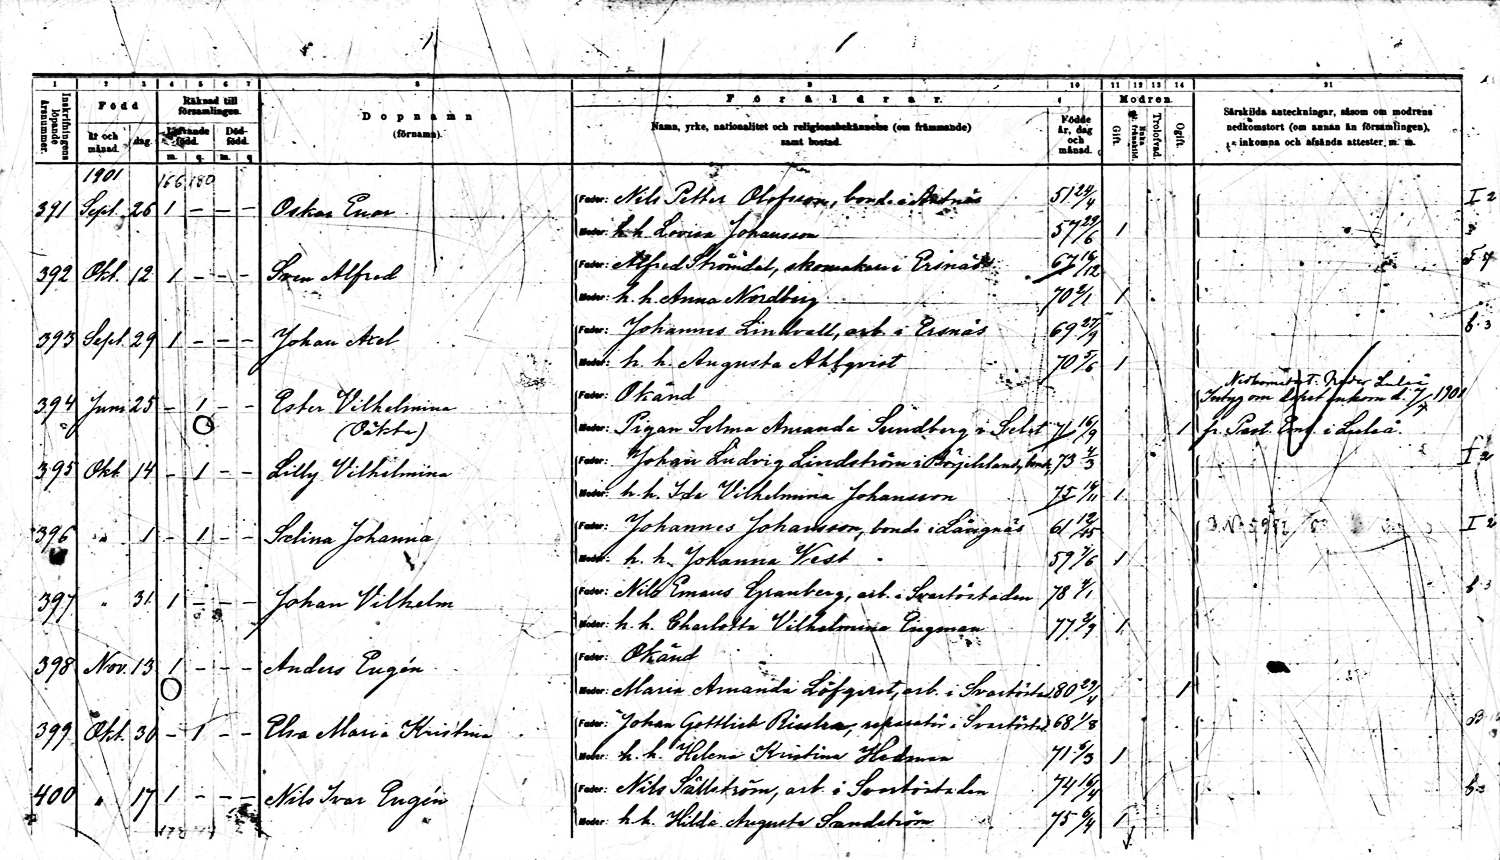 1 2 3 4 5 6 7 8 9 10 11 12 13 14 21
Inskrifningens löpande årsnummer.
Född
år och månad. dag.
Räknad till församlingen.
Lefvande född. Dödfödd.
m. q. m. q.
Dopnamn
(förnamn).
Föräldrar.
Namn, yrke, nationalitet och religionsbekännelse (om främmande)
samt bostad.
Födde år, dag och månad.
Modren
Gift. Enka Trolofvad. Ogift.
Särskilda anteckningar, såsom om modrens
nedkomstort (om annan än församlingen),
inkomna och afsända attester m. m.
1901 166 180
391 Sept. 26 1 - - - Oskar Evar Fader: Nils Petter Olofsson, bonde i Antnäs 51 24/4 I 2
Moder: h. h. Lovisa Johansson 57 29/6 1
392 Okt. 12 1 - - - Sven Alfred Fader: Alfred Strömdal, skomakare i Ersnäs 67 16/12
Moder: h. h. Anna Nordberg 70 2/1 1
393 Sept. 29 1 - - - Johan Axel Fader: Johannes Lindvall, arb. i Ersnäs 69 27/9 b. 3
Moder: h. h. Augusta Ahlqvist 70 5/6 1
394 Juni 25 - 1 - - Ester Vilhelmina Fader: Okänd
Nedkomstort: Neder Luleå
Intyg om döpet inkom d. 7/7 1901
(Oäkta) Moder: Pigan Selma Amanda Sundberg i Selet 71 16/9 1 fr. Past. Emb. i Luleå.
395 Okt. 14 - 1 - - Lilly Vilhelmina Fader: Johan Ludvig Lindström i Börjelsland, bonde 73 4/3 I 2
Moder: h. h. Ida Vilhelmina Johansson 75 14/11 1
396 " 1 - 1 - - Selina Johanna Fader: Johannes Johansson, bonde i Långnäs 61 I 2
Moder: h. h. Johanna West 59 7/6 1
397 " 31 1 - - - Johan Vilhelm Fader: Nils Emaus Granberg, arb. i Svartöstaden 78 4/1 b. 3
Moder: h. h. Charlotta Vilhelmina Engman 77 3/9 1
398 Nov. 13 1 - - - Anders Eugén Fader: Okänd
Moder: Maria Amanda Löfqvist, arb. i Svartöstad. 80 29/4 1
399 Okt. 30 - 1 - - Elsa Maria Kristina Fader: Johan Gottlieb reparatör i Svartöstad. 68 1/8
Moder: h. h. Helena Kristina Hedman 71 5/3 1
400 " 17 1 - - - Nils Ivar Eugén Fader: Nils Sällström, arb. i Svartöstaden 74 16/4 b. 3
Moder: h. h. Hilda Augusta Sandström 75 6/4 1